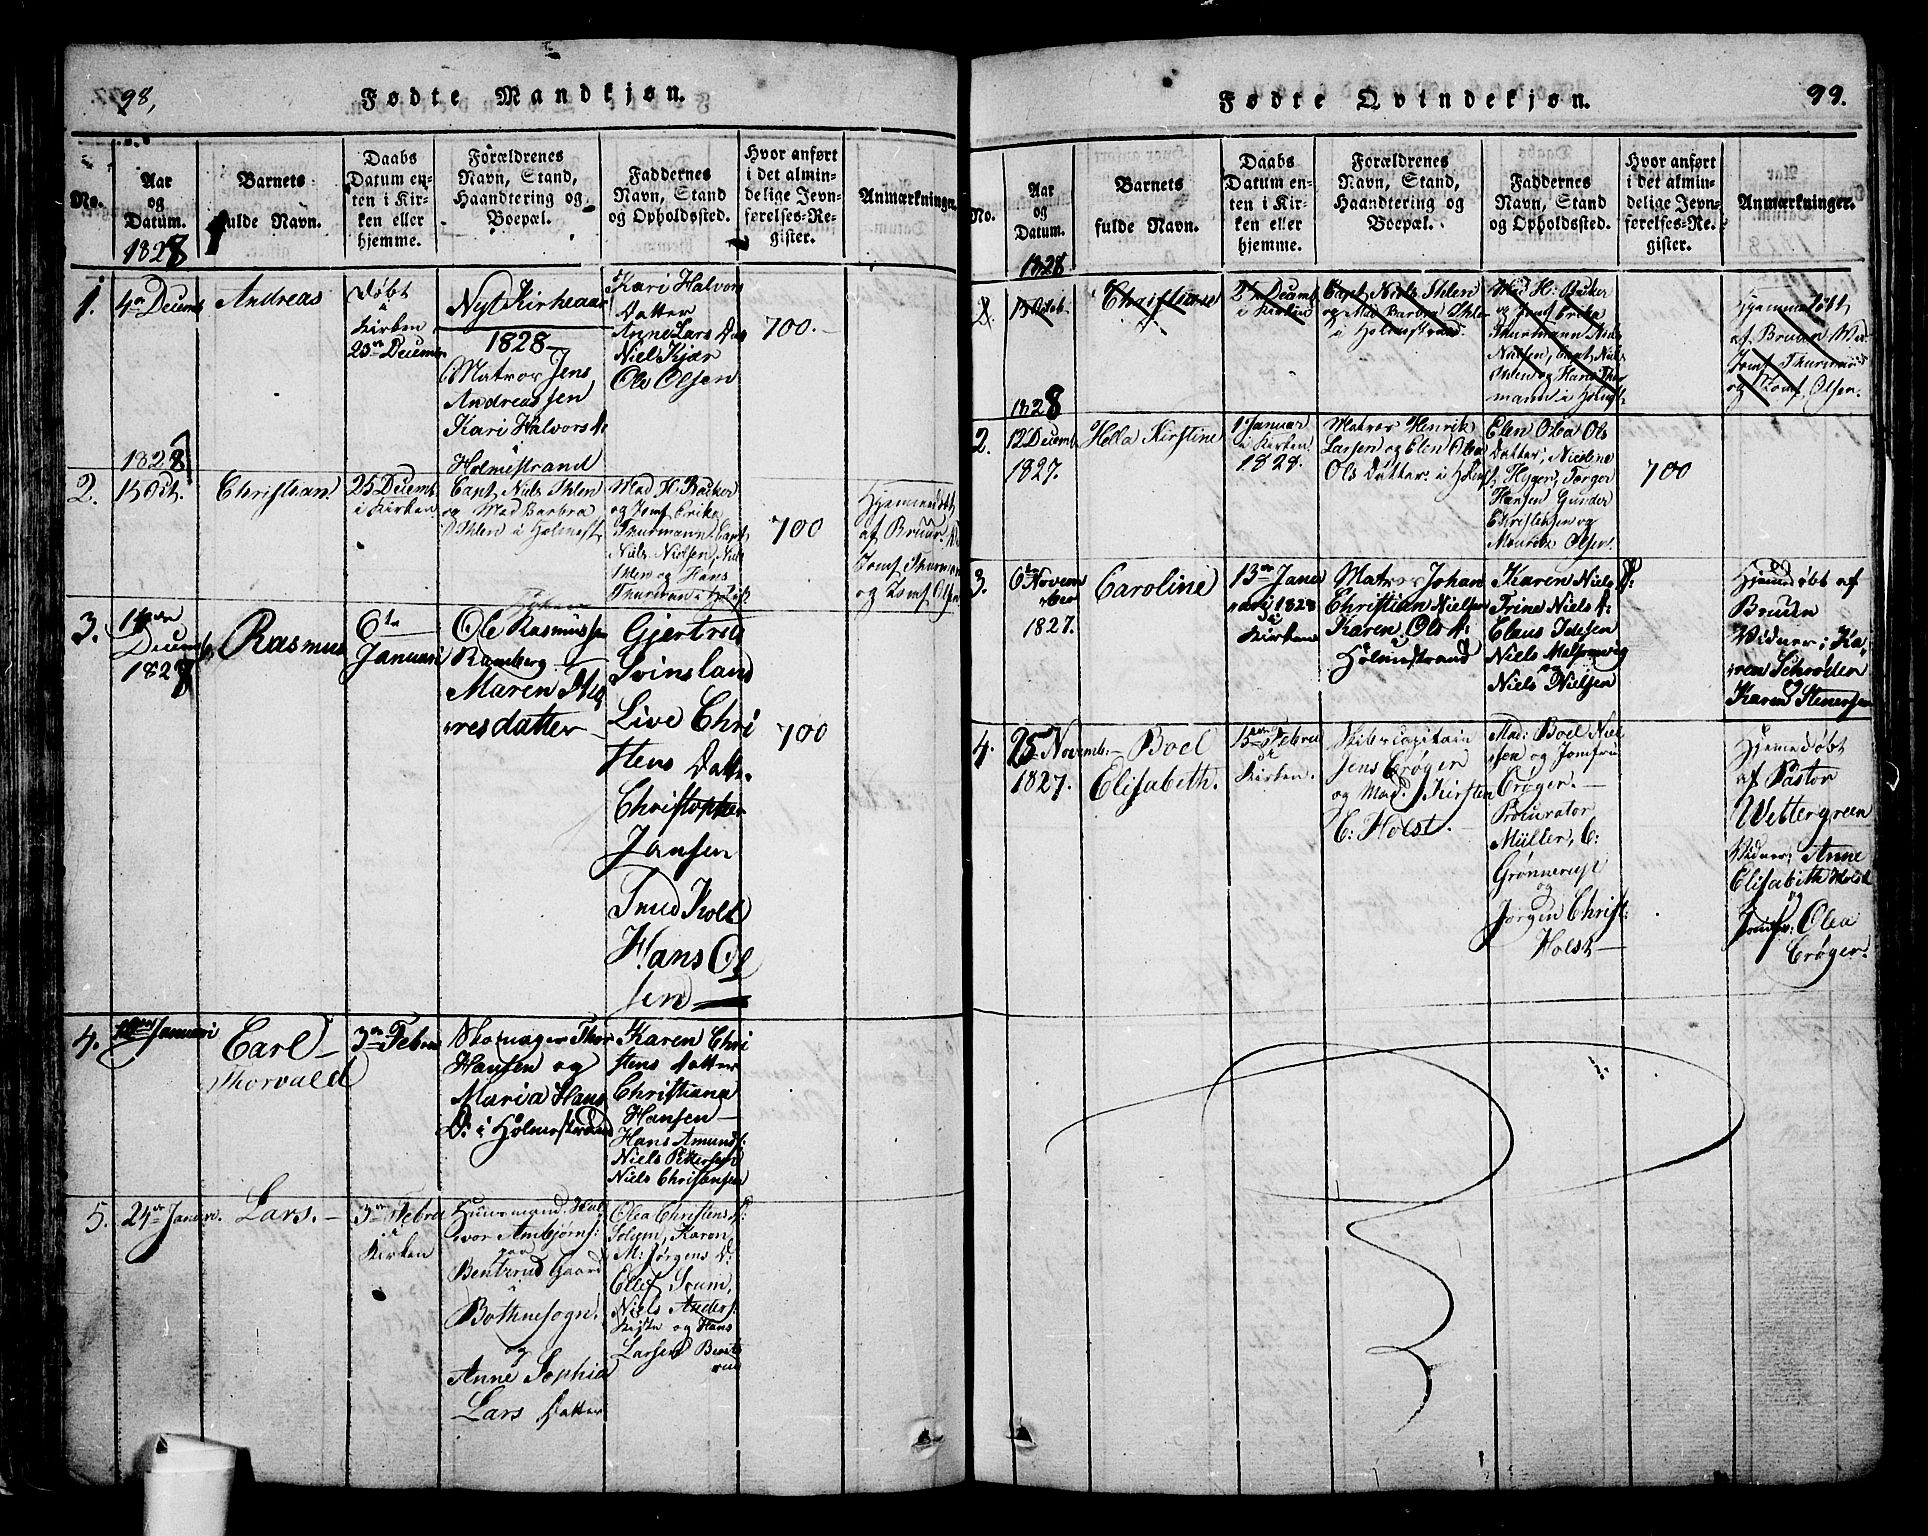 98,
Fødte Mandkjøn.
No.
Aar
og
Datum.
1828
Barnets
fulde Navn.
Daabs
Datum en-
ten i Kir-
ken eller
hjemme.
Forældrenes
Navn, Stand,
Haandtering og
Boepæl.
Faddernes
Navn, Stand
og Opholdssted.
Hvor anført
i det almin-
delige Jevn-
førelses-Re-
gister.
Anmærkninger.
1.
4de Decemb
Andreas
Døbt
i
Kirken
23de Decemb
Nyt Kirkeaar
1828
Matros Jens
Andreassen
Kari Halvors D:
Holmestrand
Kari Halvors
Datter
Anne Lars D
Niels Kjær
Ole Olsen
700.
1828
2.
15 Oct.
Christian
25 Decemb
i Kirken
Capt. Niels Ihlen
og Mad Barbra
Ihlen i Holmest
Mad H. Backer
og Jomf Erika
Thurmann, Capt.
Niels Nielsen, Niels
Ihlen og Hans
Thurman i Holmst
700
Hjemmedøbt
af Bruun
Jomf Thurman
og Jomf Olsen
3.
Decemb
1828
Rasmus
6te
Januari
Ole Rasmussen
Ramberg
Maren
resdatter
Gjertrud
Svinsland
Live Chri
stens Datter
Christopher
Jansen
Knud Holt
Hans Ol
sen
700
4.
Januari
Carl
Thorvald
3de Febru
Skomager Thor
Hansen og
Maria Hans
D: i Holmestrand
Karen Chri
stens datter
Christiana
Hansen
Hans Amunds:
Niels Pettersen
Niels Christansen
5.
24de Januar.
Lars.
3de Febru
i
Kirken
Huusmand Hal
vor Ambjørns:
paa
Bentsrud Gaard
i
Bothnesogn
og
Anne Sophia
Lars Datter
Olea Christens D:
Solum, Karen
M: Jørgens D:
Ellef Soum,
Niels Anders:
og Hans
Larsen Bents
rud
99.
Fødte Qvindekjøn.
No.
Aar
og
Datum.
1828
Barnets
fulde Navn.
Daabs
Datum en-
ten i Kir-
ken eller
hjemme.
Forældrenes
Navn, Stand,
Haandtering og
Boepæl.
Faddernes
Navn, Stand
og Opholdssted.
Hvor anført
i det almin-
delige Jevn-
førelses-Re-
gister.
Anmærkninger.
15 Octob
Christiane
25 Decemb
i Kirken
Capt. Niels Ihlen
og Mad Barbra Ihlen
i Holmestrand
Mad H: Backer
og Jomf Erika
Thurmann Niels
Nielsen, Capt. Niels
Ihlen og Hans Thur
mann i Holmst
Hjemmedøbt
af Bruun
Jomf Thurmann
og Jomf. Olsen.
1828
2.
12 Decemb
1827.
Hella Kirstine
1 Januar
i Kirken
1828.
Matros Henrik
Larsen og Elen Olea
Ols Datter i Holmst
Elen Olea Ols
Datter, Nicoline
Hyger, Torger
Hansen Gunder
Christensen og
Mauritz Olsen
700
3.
6te Novem
ber
1827.
Caroline
13de Janu
ari 1828
i
Kirken
Matros Johan
Christian Nielsen
Karen Ols D:
i
Holmestrand
Karen Niels D:
Trine Niels D:
Claus
Niels
og
Niels Nielsen
Hjemdøbt af
Bruun
Vidner; Ka,
ren Schrøder
og
Karen Stenersen
4.
25 Novemb:
1827.
Boel
Elisabeth.
15de Febru
i
Kirken.
Skibscapitain
Jens Crøger
og Mad. Kirsten
C: Holst.
Mad: Boel Niel
sen og Jomfru
Crøger.
Procurator
Müller, C:
og
Jørgen Christ:
Holst
Hjemedøbt
af Pastor
Wettergreen
Vidner: Anne
Elisabeth Holst
og
Jomfr: Olea
Crøger.